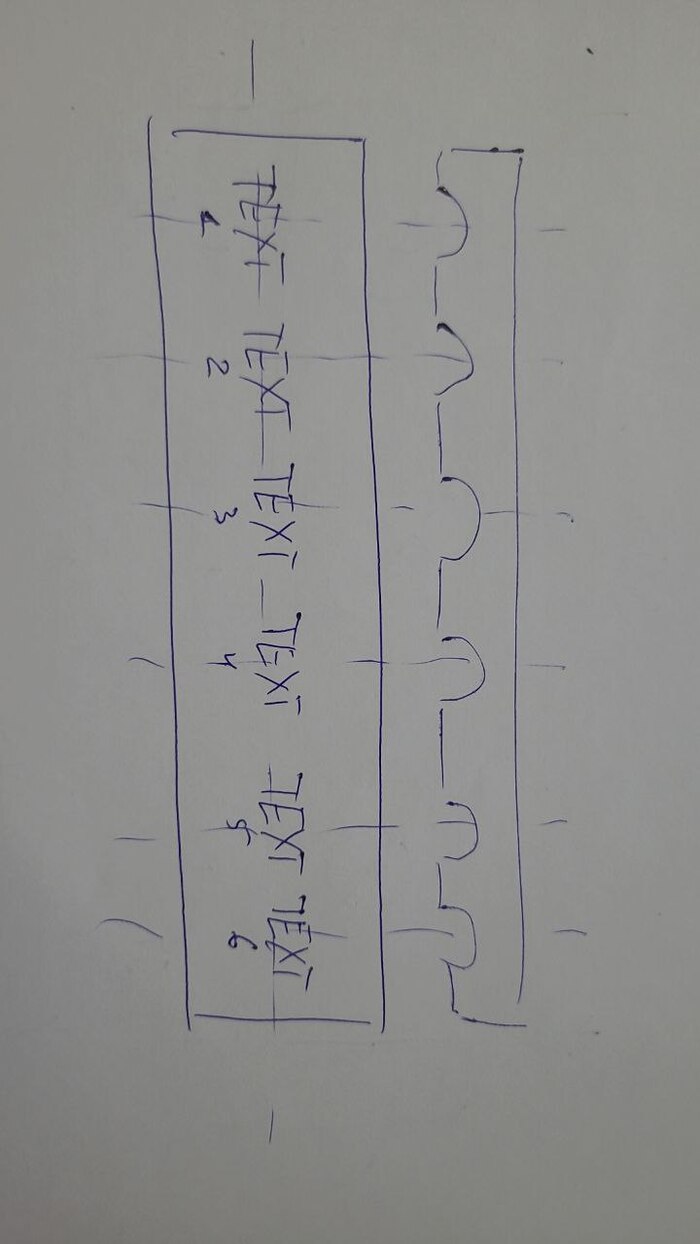 TEXT TEXT TEXT TEXT TEXT TEXT
1 2 3 4 5 6